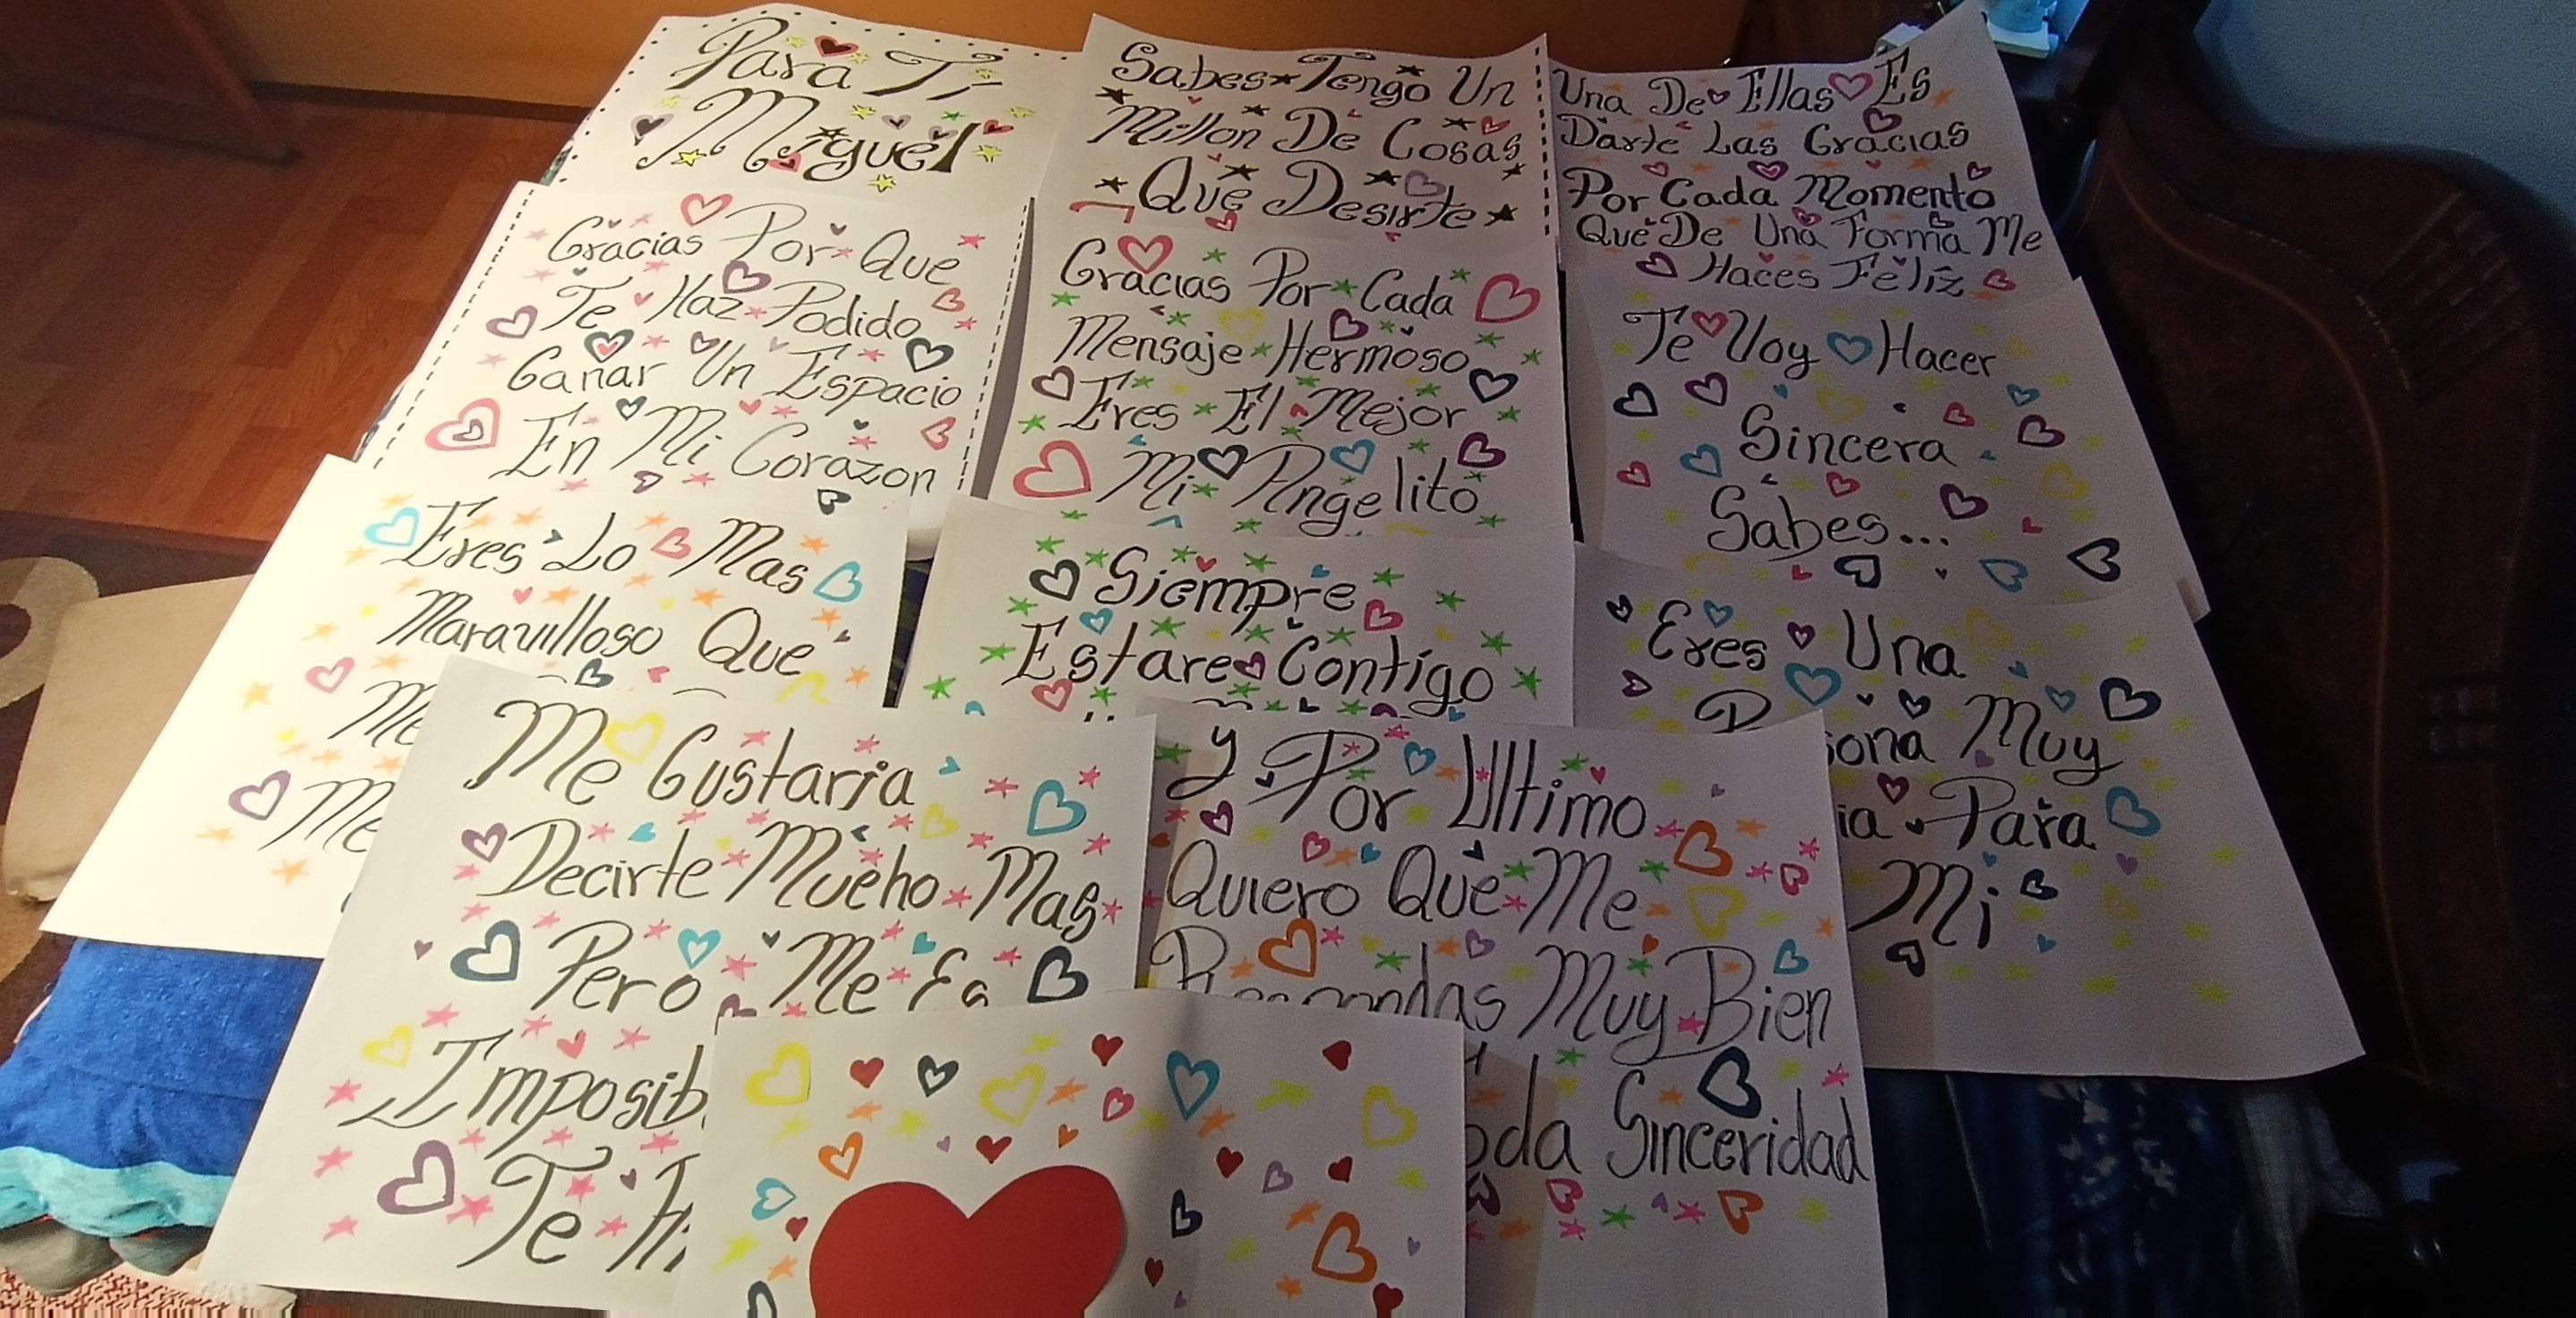 Para Ti
Miguel
Sabes Tengo Un
Millon De Cosas
Que Desirte
Una De Ellas Es
Darte Las Gracias
Por Cada Momento
Que De Una Forma Me
Haces Feliz
Gracias Por Que
Te Haz Podido
Ganar Un Espacio
En Mi Corazon
Gracias Por Cada
Mensaje Hermoso
Eres El Mejor
Mi Angelito
Te Voy Hacer
Sincera
Sabes...
Eres Lo Mas
Maravilloso Que
Me
Me
Siempre
Estare Contigo
Eres Una
Muy
Para
Mi
Me Gustaria
Decirte Mucho Mas
Pero Me Es
Te
y Por Ultimo
Quiero Que Me
Muy Bien
Sinceridad